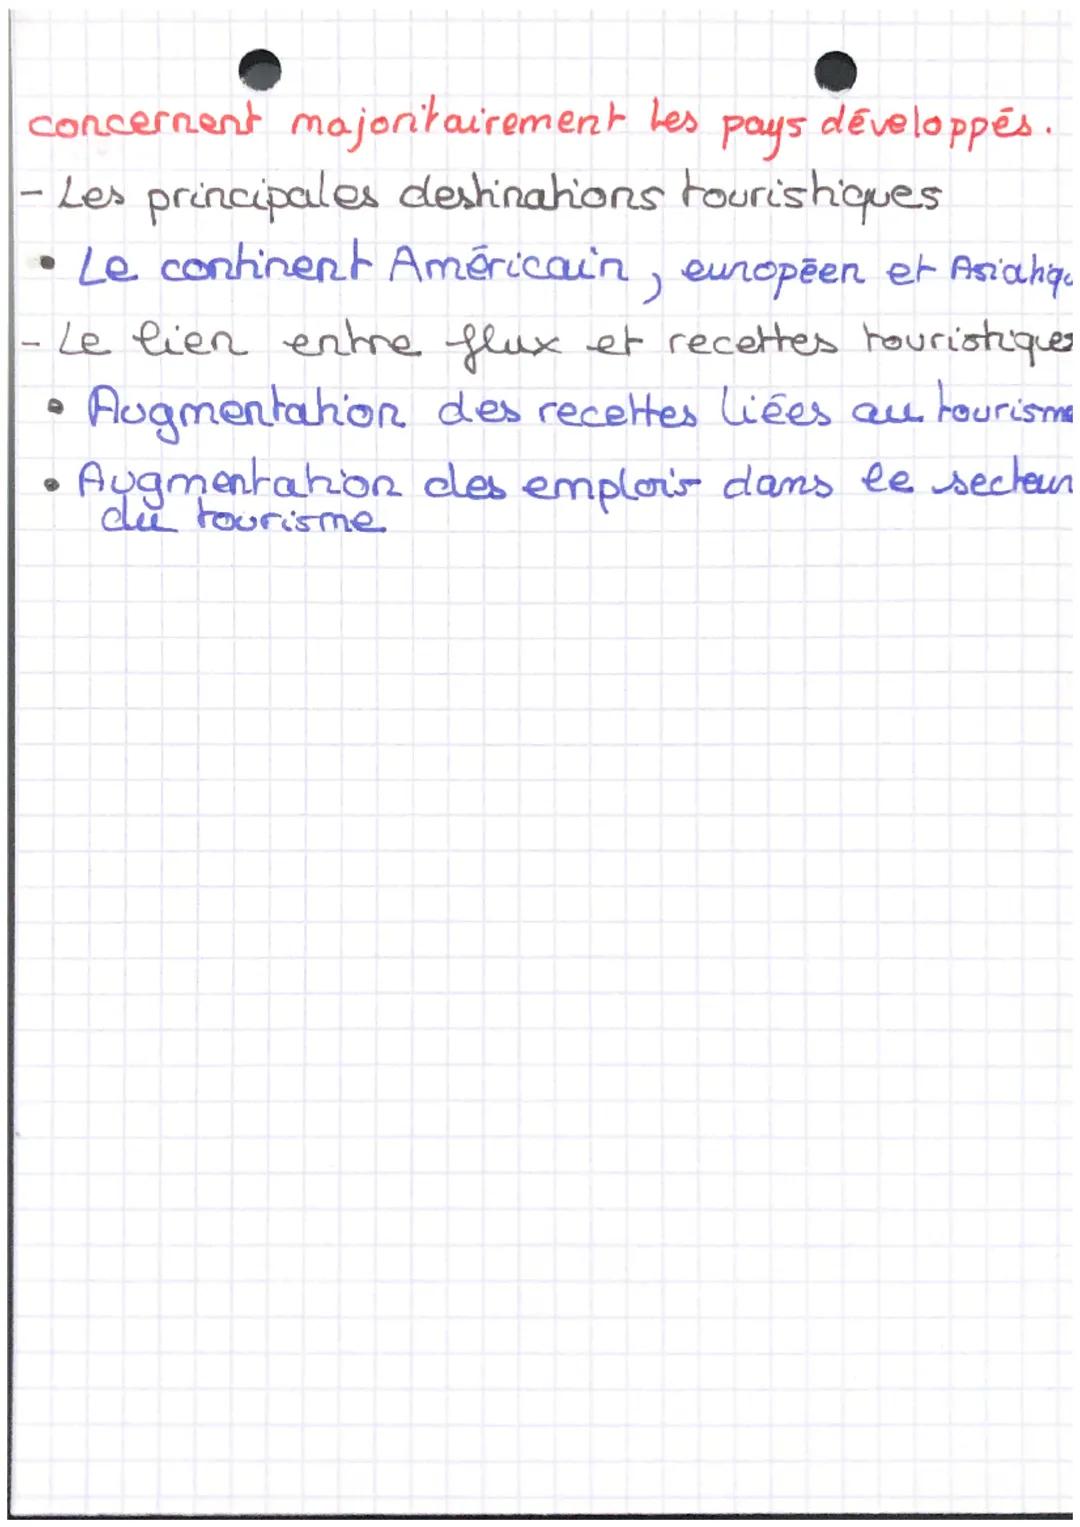 concernent majoritairement les pays développés.
- Les principales destinations touristiques
• Le continent Américain, européen et Asiatiqu
- Le lien entre flux et recettes touristiques
• Augmentation des recettes liées au tourisme
• Augmentation des emplois dans le secteur
du tourisme